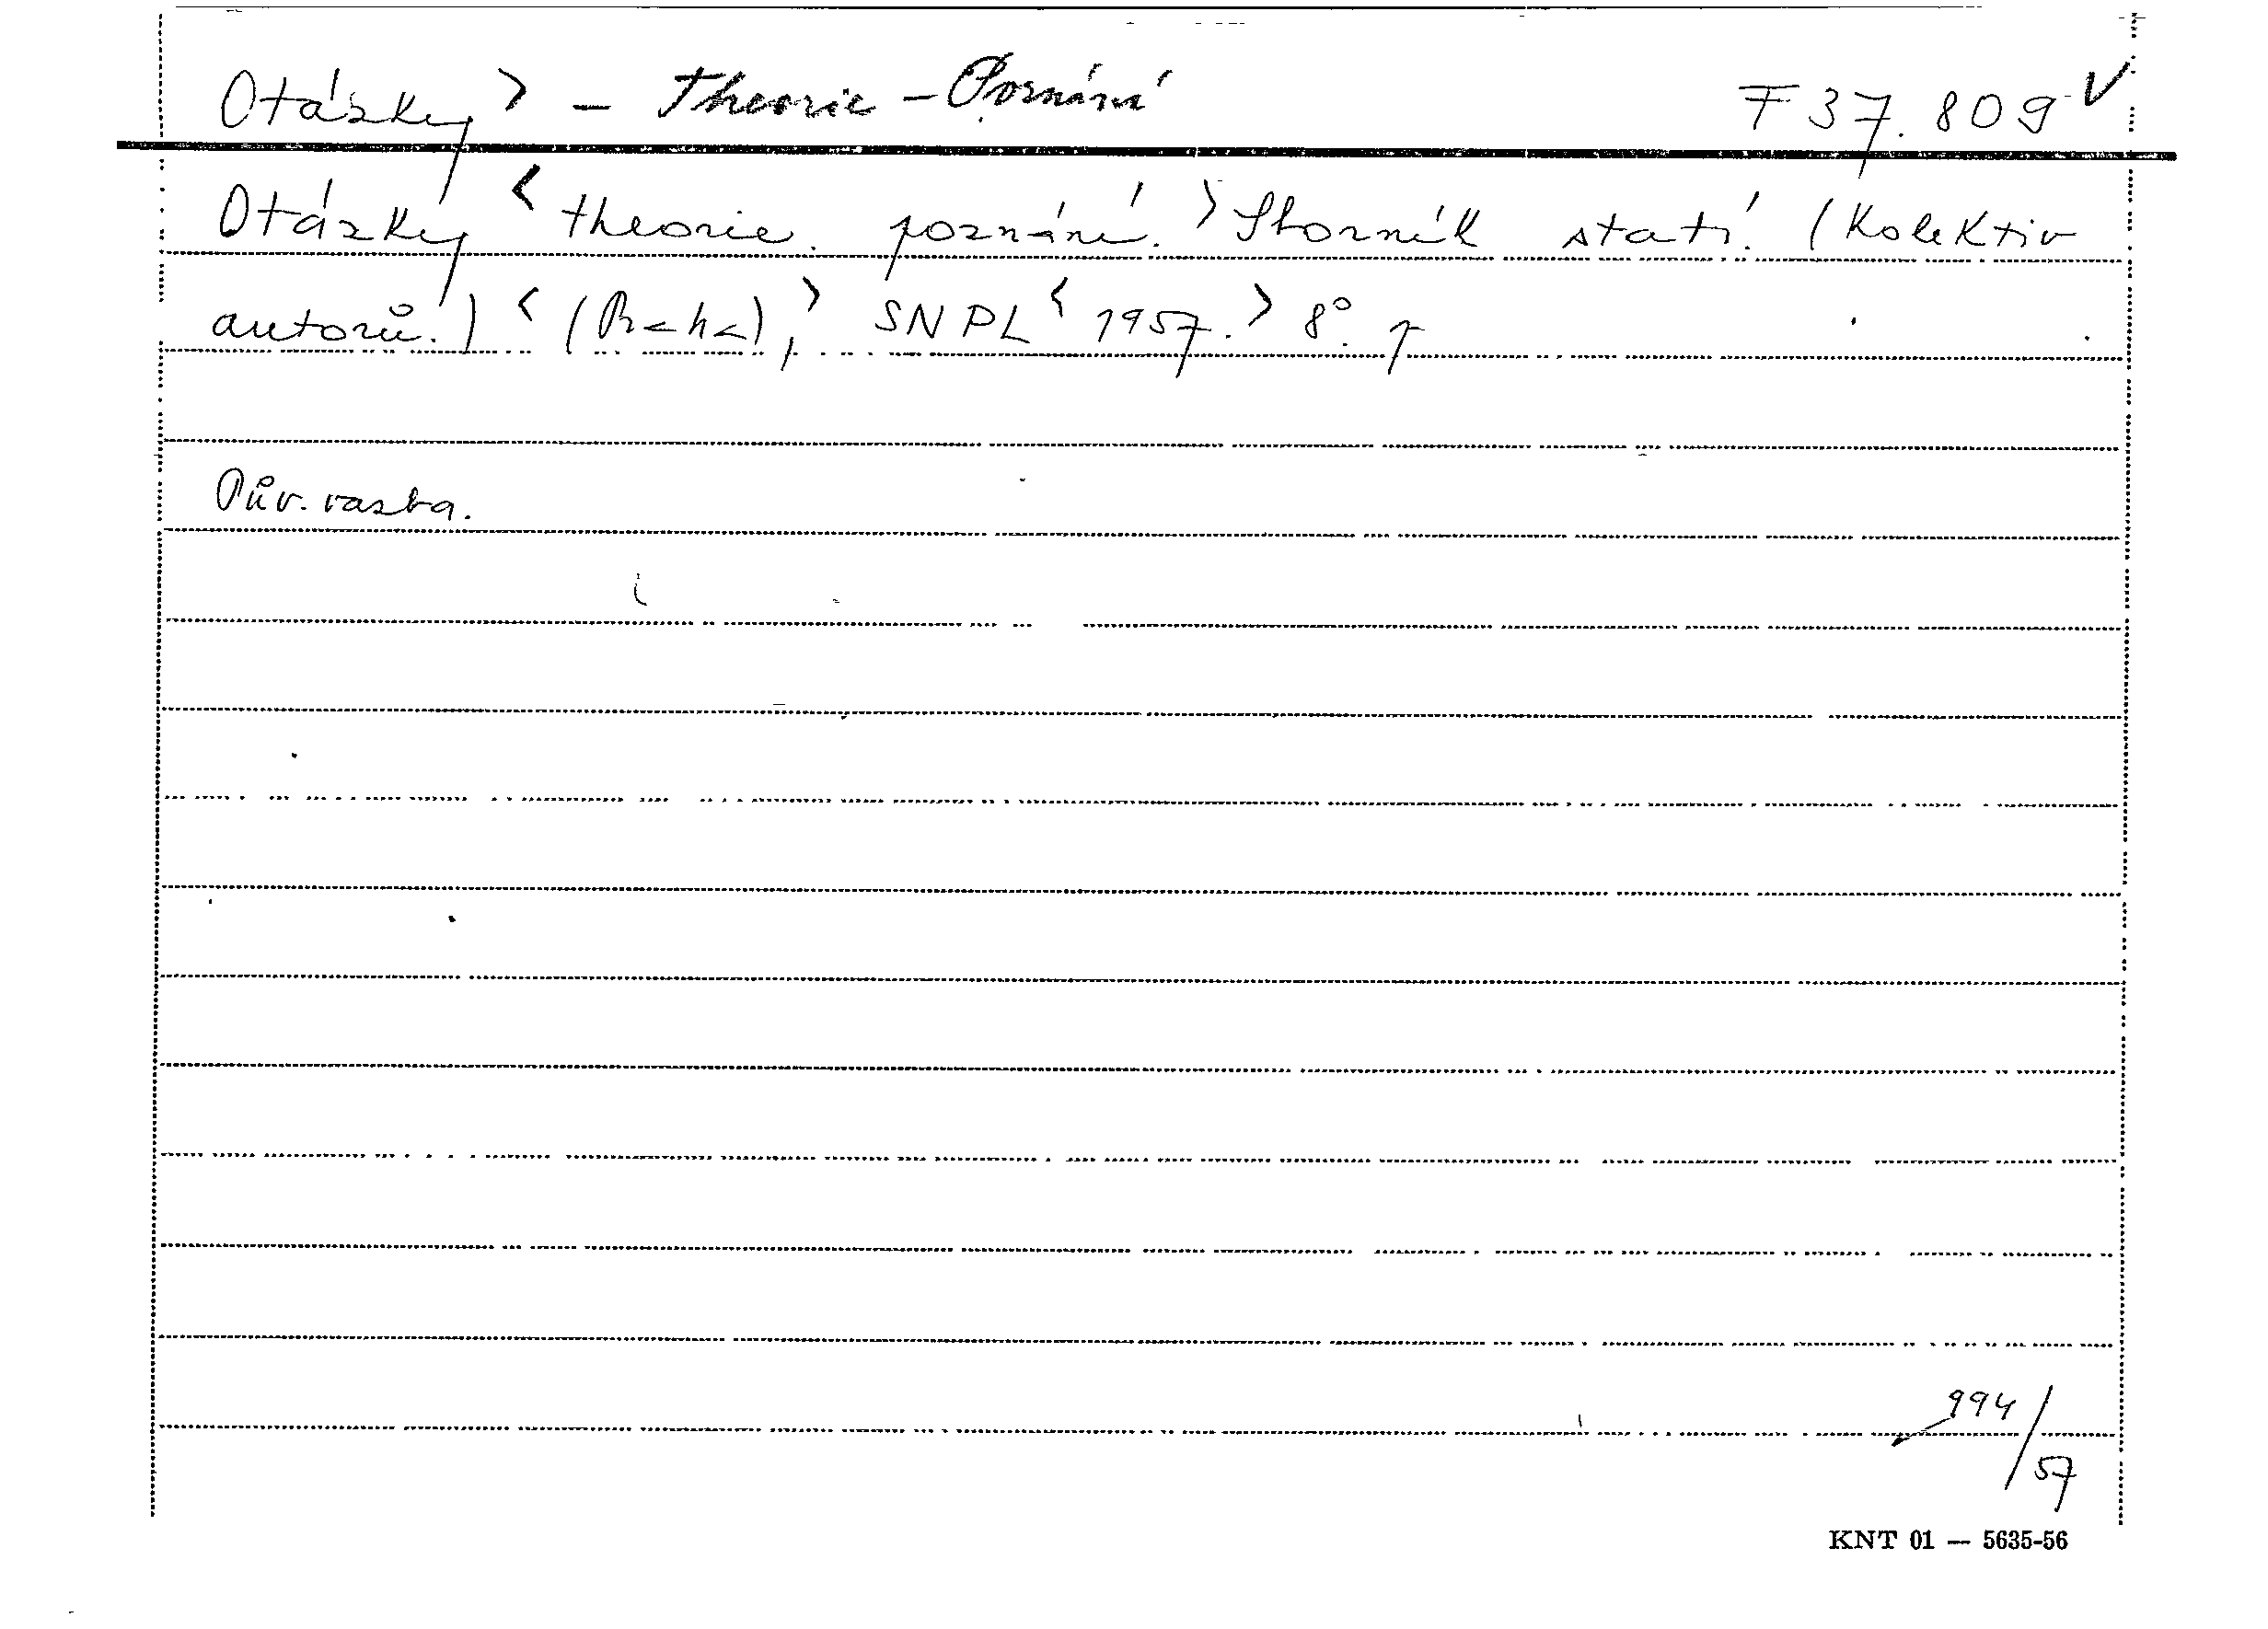 Otázky > – Theorie – Poznání F 37.809 V
Otázky < theorie poznání. > Sborník statí. (Kolektiv
autorů.) < (Praha), > SNPL < 1957. > 8°.
Pův. vazba.
994/57
KNT 01 — 5635-56